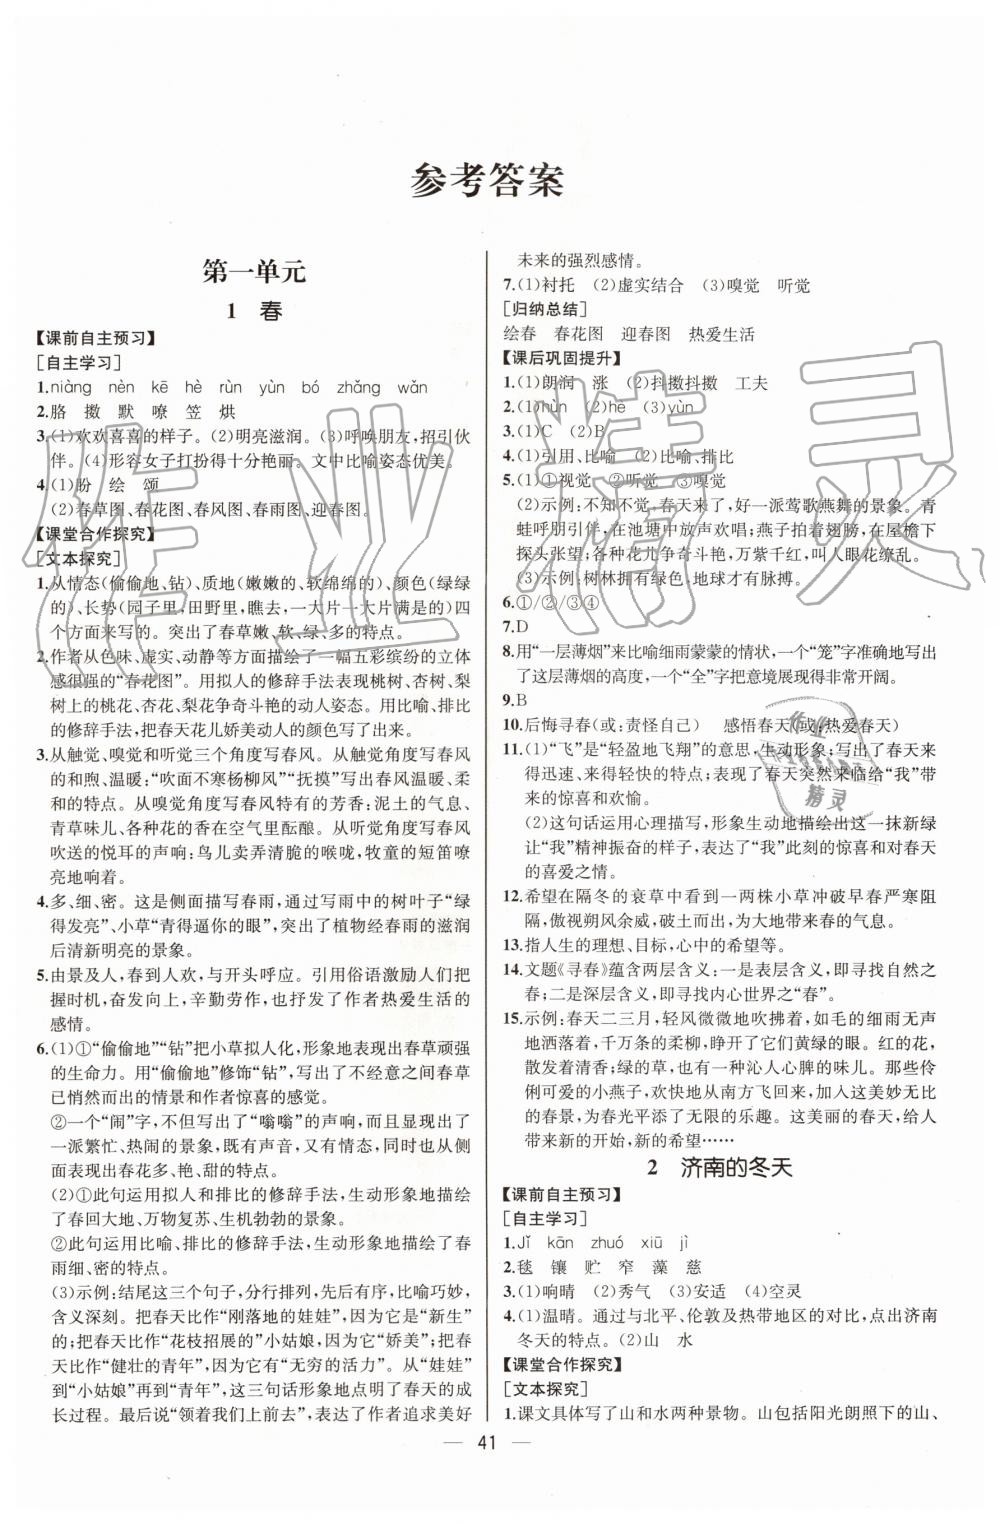 参考答案
第一单元
1 春
【课前自主预习】
[自主学习]
1.niàng nèn kē hè rùn yùn bó zhǎng wǎn
2.胳 擞 默 嘹 笠 烘
3.(1)欢欢喜喜的样子。(2)明亮滋润。(3)呼唤朋友,招引伙
伴。(4)形容女子打扮得十分艳丽。文中比喻姿态优美。
4.(1)盼 绘 颂
(2)春草图、春花图、春风图、春雨图、迎春图。
【课堂合作探究】
[文本探究]
1.从情态(偷偷地、钻)、质地(嫩嫩的、软绵绵的)、颜色(绿绿
的)、长势(园子里,田野里,瞧去,一大片一大片满是的)四
个方面来写的。突出了春草嫩、软、绿、多的特点。
2.作者从色味、虚实、动静等方面描绘了一幅五彩缤纷的立体
感很强的“春花图”。用拟人的修辞手法表现桃树、杏树、梨
树上的桃花、杏花、梨花争奇斗艳的动人姿态。用比喻、排比
的修辞手法,把春天花儿娇美动人的颜色写了出来。
3.从触觉、嗅觉和听觉三个角度写春风。从触觉角度写春风
的和煦、温暖:“吹面不寒杨柳风”“抚摸”写出春风温暖、柔
和的特点。从嗅觉角度写春风特有的芳香:泥土的气息、
青草味儿、各种花的香在空气里酝酿。从听觉角度写春风
吹送的悦耳的声响:鸟儿卖弄清脆的喉咙,牧童的短笛嘹
亮地响着。
4.多、细、密。这是侧面描写春雨,通过写雨中的树叶子“绿
得发亮”、小草“青得逼你的眼”,突出了植物经春雨的滋润
后清新明亮的景象。
5.由景及人,春到人欢,与开头呼应。引用俗语激励人们把
握时机,奋发向上,辛勤劳作,也抒发了作者热爱生活的
感情。
6.(1)①“偷偷地”“钻”把小草拟人化,形象地表现出春草顽强
的生命力。用“偷偷地”修饰“钻”,写出了不经意之间春草
已悄然而出的情景和作者惊喜的感觉。
②一个“闹”字,不但写出了“嗡嗡”的声响,而且呈现出了
一派繁忙、热闹的景象,既有声音,又有情态,同时也衬托
出春花多、艳、甜的特点。
(2)①此句运用拟人和排比的修辞手法,生动形象地描绘
了春回大地、万物复苏、生机勃勃的景象。
②此句运用比喻、排比的修辞手法,生动形象地描绘了春
雨细、密的特点。
(3)示例:结尾这三个句子,分行排列,先后有序,比喻巧妙,
含义深刻。把春天比作“刚落地的娃娃”,因为它是“新生”
的;把春天比作“花枝招展的”小姑娘,因为它“娇美”;把春
天比作“健壮的青年”,因为它有“无穷的活力”。从“娃娃”
到“小姑娘”再到“青年”,这三句话形象地点明了春天的成
长过程。最后写“领着我们上前去”,表达了作者追求美好
未来的强烈感情。
7.(1)衬托 (2)虚实结合 (3)嗅觉 听觉
[归纳总结]
绘春 春花图 迎春图 热爱生活
【课后巩固提升】
1.(1)朗润 涨 (2)抖擞抖擞 工夫
2.(1)hùn (2)hē (3)yùn
3.(1)C (2)B
4.(1)引用、比喻 (2)比喻、排比
5.(1)①视觉 ②听觉 ③嗅觉
(2)示例:不知不觉,春天来了,好一派莺歌燕舞的景象。青
蛙呼朋引伴,在池塘中放声欢唱;燕子拍着翅膀,在屋檐下
探头张望;各种花儿争奇斗艳,万紫千红,叫人眼花缭乱。
(3)示例:树林拥有绿色,地球才有脉搏。
6.①/②/③④
7.D
8.用“一层薄烟”来比喻细雨蒙蒙的情状,一个“笼”字准确地写出
了这层薄烟的高度,一个“全”字把意境展现得非常开阔。
9.B
10.后悔寻春(或:责怪自己) 感悟春天(或:热爱春天)
11.(1)“飞”是“轻盈地飞翔”的意思,生动形象;写出了春天来
得迅速、来得轻快的特点;表现了春天突然来临给“我”带
来的惊喜和欢愉。
(2)这句话运用心理描写,形象生动地描绘出这一抹新绿
让“我”精神振奋的样子,表达了“我”此刻的惊喜和对春天
的喜爱之情。
12.希望在隔冬的衰草中看到一两株小草冲破早春严寒阻
隔,傲视朔风余威,破土而出,为大地带来春的气息。
13.指人生的理想、目标,心中的希望等。
14.文题《寻春》蕴含两层含义:一是表层含义,即寻找自然之
春;二是深层含义,即寻找内心世界之“春”。
15.示例:春天二三月,轻风微微地吹拂着,如毛的细雨无声
地洒落着,千万条的柔柳,睁开了它们黄绿的眼。红的花,
散发着清香;绿的草,也有一种沁人心脾的味儿。那些伶
俐可爱的小燕子,欢快地从南方飞回来,加入这美妙无比
的春景,为春光平添了无限的乐趣。这美丽的春天,给人
带来新的开始,新的希望……
2 济南的冬天
【课前自主预习】
[自主学习]
1.Jǐ kān zhuó xiū jì
2.毯 镶 贮 窄 藻 慈
3.(1)响晴 (2)秀气 (3)安适 (4)空灵
4.(1)温晴。通过与北平、伦敦及热带地区的对比,点出济南
冬天的特点。(2)山 水
【课堂合作探究】
[文本探究]
1.课文具体写了山和水两种景物。山包括阳光朗照下的山、
— 41 —
作业精灵
作业
精灵